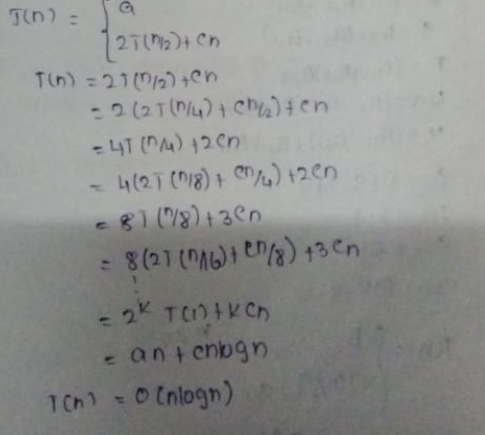 T(n) = { a
2T(n/2)+cn
T(n) = 2T(n/2)+cn
= 2(2T(n/4)+cn/2)+cn
= 4T(n/4)+2cn
= 4(2T(n/8)+cn/4)+2cn
= 8T(n/8)+3cn
= 8(2T(n/16)+cn/8)+3cn
⋮
= 2^k T(1)+kcn
= an+cnlogn
T(n) = O(nlogn)